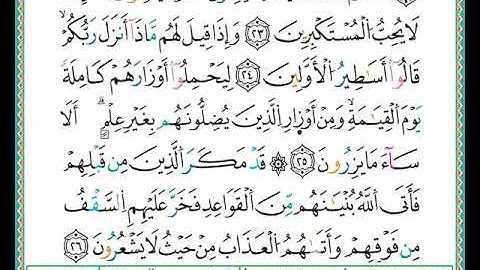 لَا يُحِبُّ الْمُسْتَكْبِرِينَ ﴿٢٣﴾ وَإِذَا قِيلَ لَهُم مَّاذَا أَنزَلَ رَبُّكُمْ ۙ
قَالُوا أَسَاطِيرُ الْأَوَّلِينَ ﴿٢٤﴾ لِيَحْمِلُوا أَوْزَارَهُمْ كَامِلَةً
يَوْمَ الْقِيَامَةِ ۙ وَمِنْ أَوْزَارِ الَّذِينَ يُضِلُّونَهُم بِغَيْرِ عِلْمٍ ۗ أَلَا
سَاءَ مَا يَزِرُونَ ﴿٢٥﴾ ۞ قَدْ مَكَرَ الَّذِينَ مِن قَبْلِهِمْ
فَأَتَى اللَّهُ بُنْيَانَهُم مِّنَ الْقَوَاعِدِ فَخَرَّ عَلَيْهِمُ السَّقْفُ
مِن فَوْقِهِمْ وَأَتَاهُمُ الْعَذَابُ مِنْ حَيْثُ لَا يَشْعُرُونَ ﴿٢٦﴾